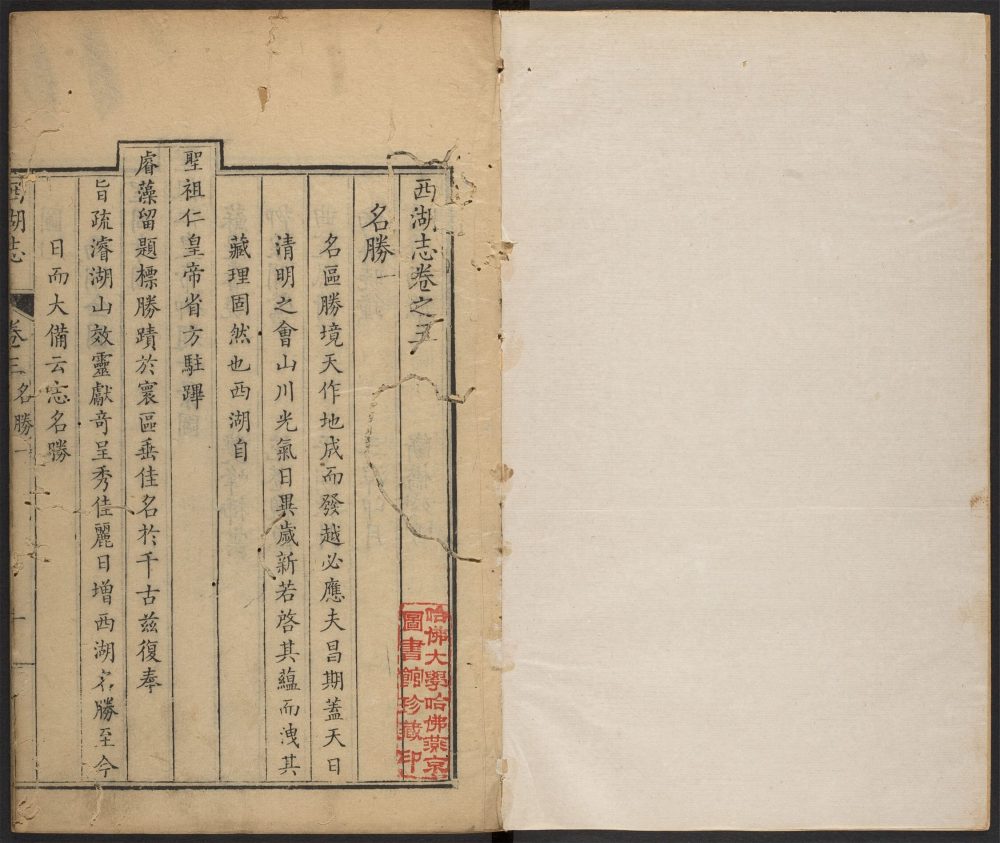 西湖志卷之三
哈佛大學哈佛燕京
圖書館珍藏印
名勝一
名區勝境天作地成而發越必應夫昌期蓋天日
清明之會山川光氣日異歲新若啓其蘊而洩其
藏理固然也西湖自
聖祖仁皇帝省方駐蹕
睿藻留題標勝蹟於寰區垂佳名於千古茲復奉
旨疏濬湖山效靈獻竒呈秀佳麗日增西湖名勝至今
日而大備云志名勝
西湖志 卷三 名勝一 一